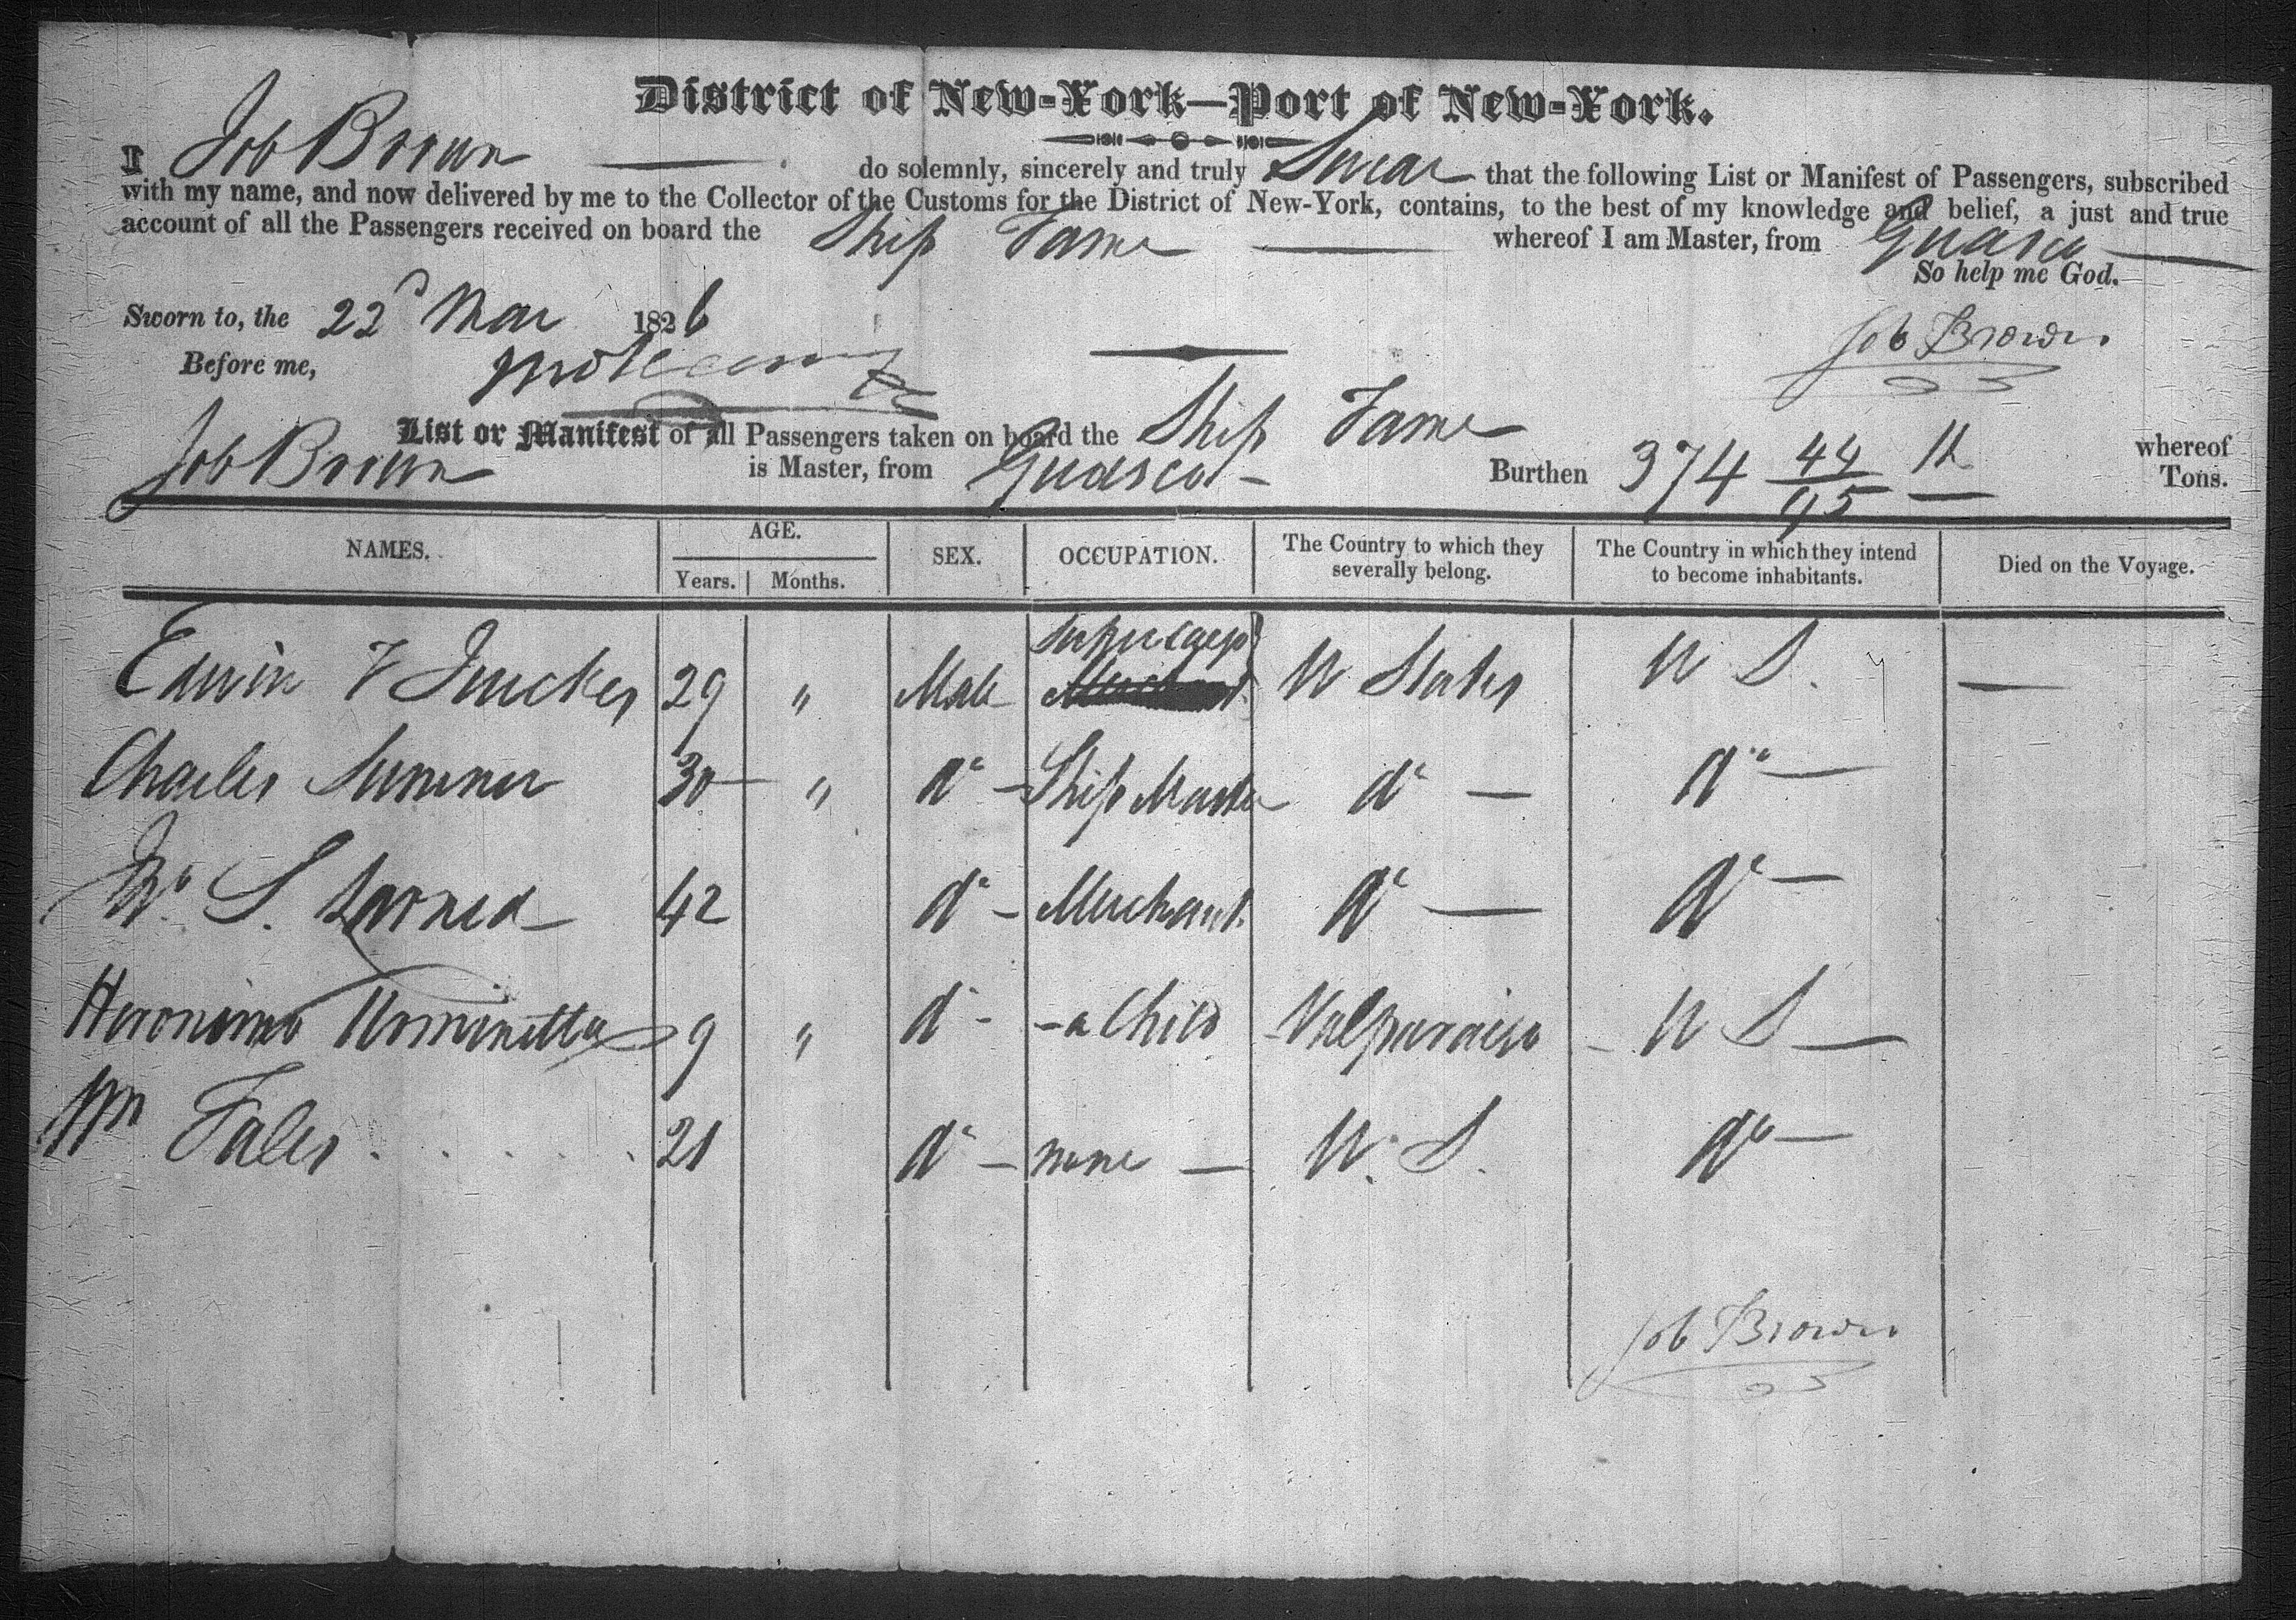 District of New-York—Port of New-York.
I Job Brown do solemnly, sincerely and truly Swear that the following List or Manifest of Passengers, subscribed
with my name, and now delivered by me to the Collector of the Customs for the District of New-York, contains, to the best of my knowledge and belief, a just and true
account of all the Passengers received on board the Ship Fame whereof I am Master, from Guasco
So help me God.
Sworn to, the 22d Mar 1826
Job Brown
Before me,
List or Manifest of all Passengers taken on board the Ship Fame whereof
Job Brown is Master, from Guasco Burthen 374 44/95 Tons.
NAMES. AGE. SEX. OCCUPATION. The Country to which they severally belong. The Country in which they intend to become inhabitants. Died on the Voyage.
Years. Months.
Supercargo
Edwin F Tucker 29 " Male Merchant U States U S. —
Charles Sumner 30 " do Ship Master do — do —
S. Larned 42 do Merchant. do — do —
9 " do a Child Valparaiso U S —
Wm Fales 21 do none — U. S. do —
Job Brown